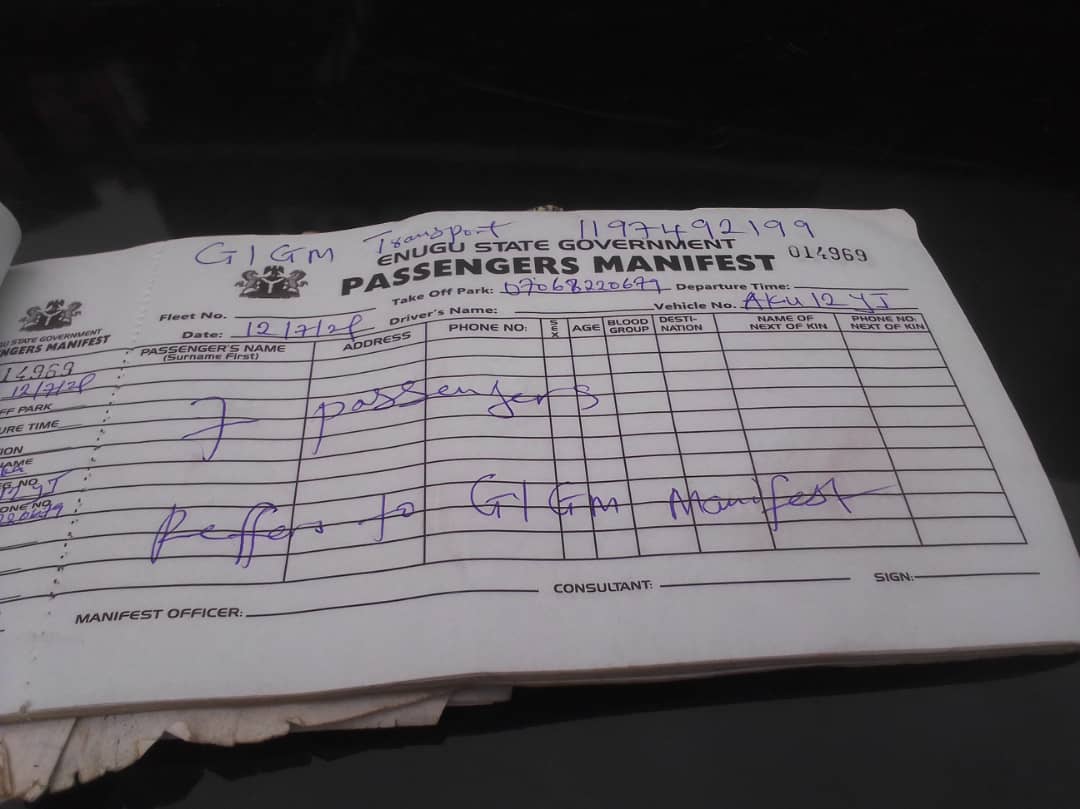 GIGM Transport 1197492199
ENUGU STATE GOVERNMENT
PASSENGERS MANIFEST 014969
Take Off Park: 07068220679 Departure Time:
Fleet No. Driver's Name: Vehicle No. AKU 12 YJ
Date: 12/7/2
PASSENGER'S NAME (Surname First) ADDRESS PHONE NO: SEX AGE BLOOD GROUP DESTI-NATION NAME OF NEXT OF KIN PHONE NO: NEXT OF KIN
7 passengers
Reffers to GIGM Manifest
MANIFEST OFFICER: CONSULTANT: SIGN:
STATE GOVERNMENT
NGERS MANIFEST
14969
12/7/2
FF PARK
URE TIME
ION
NAME
G NO
YJ
ONE NO